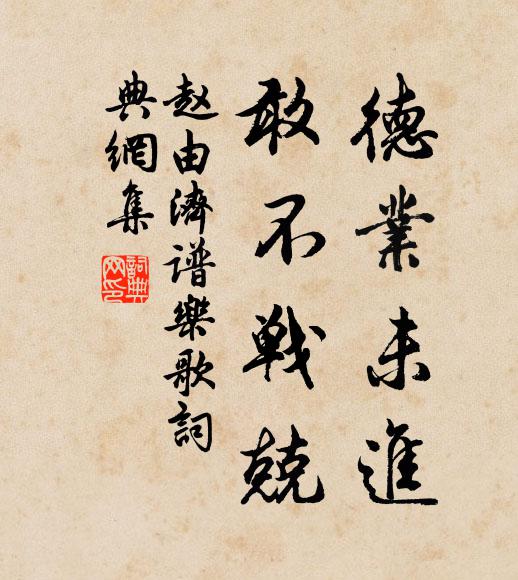 德業未進
敢不戦兢
赵由濟譜樂歌詞
典網集
詞典
网印